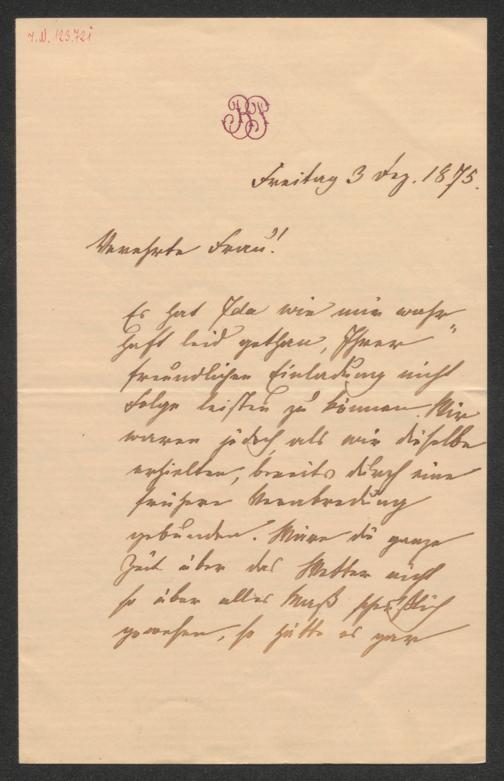 I.N. 123.721
Freitag 3 Dez. 1875.
Verehrte Frau!
Es hat Ida wie mir wahr
haft leid gethan, Ihrer
freundlichen Einladung nicht
Folge leisten zu können. Wir
waren jedoch, als wir dieselbe
erhielten, bereits durch eine
frühere Verabredung
gebunden. Wäre die ganze
Zeit über das Wetter nicht
so über alles Maß scheußlich
gewesen, so hätte es gar